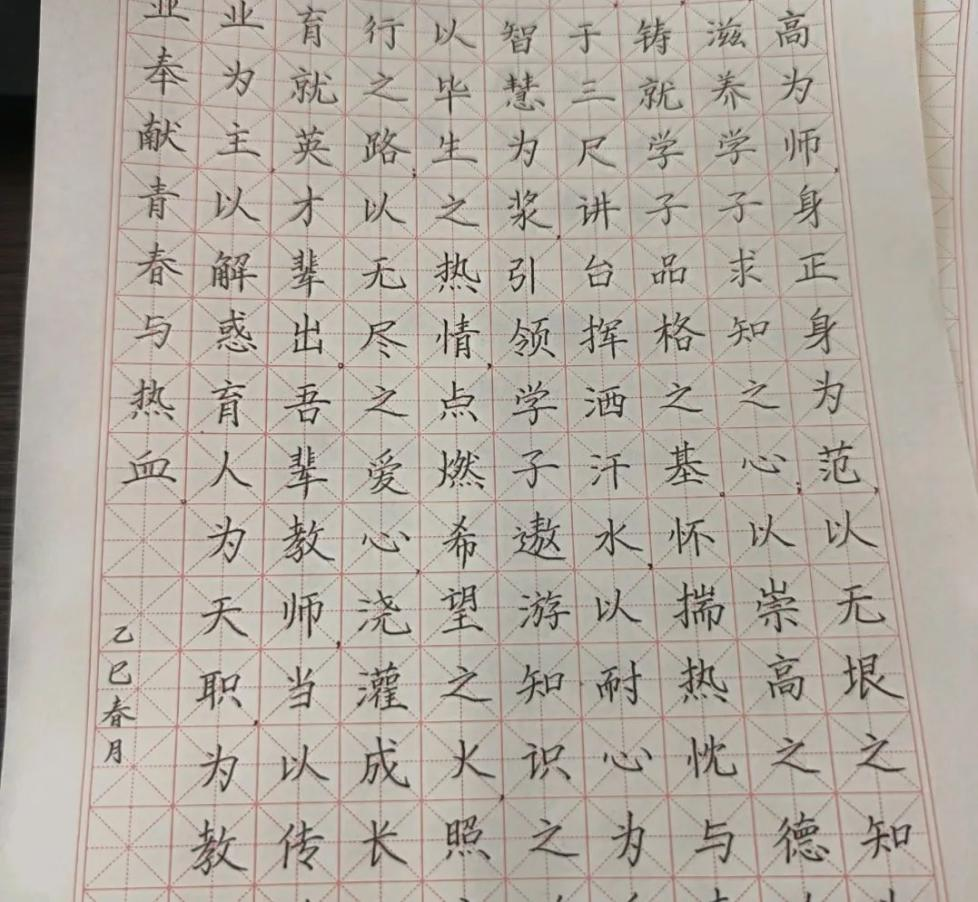 高为师,身正身为范,以无垠之知
滋养学子求知之心;以崇高之德
铸就学子品格之基。怀揣热忱与
于三尺讲台挥洒汗水,以耐心为
智慧为浆,引领学子遨游知识之
以毕生之热情,点燃希望之火,照
行之路;以无尽之爱心浇灌成长
育就英才辈出。吾辈教师,当以传
业为主,以解惑育人为天职,为教
业奉献青春与热血。
乙巳春月